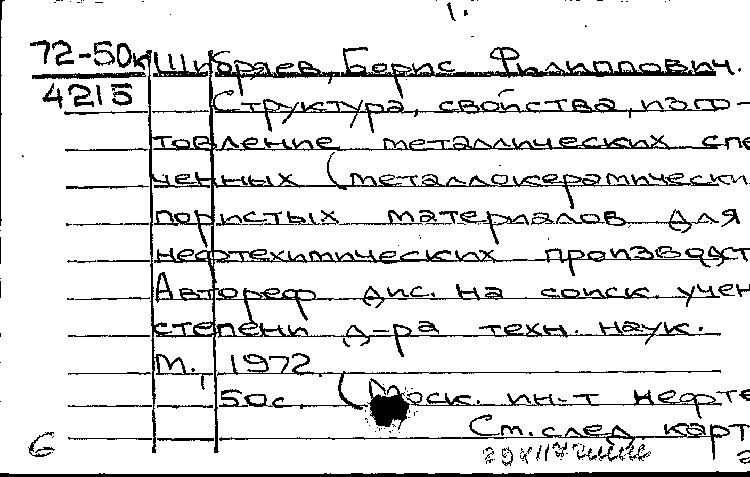 1.
72-50к Шибряев, Борис Филиппович.
4215 Структура, свойства, изго-
товление металлических спе
ченных (металлокерамически
пористых материалов для
нефтехимических производст
Автореф дис. на соиск. учен
степени д-ра техн. наук.
М., 1972.
50с. (Моск. ин-т нефте
См. след карт
6